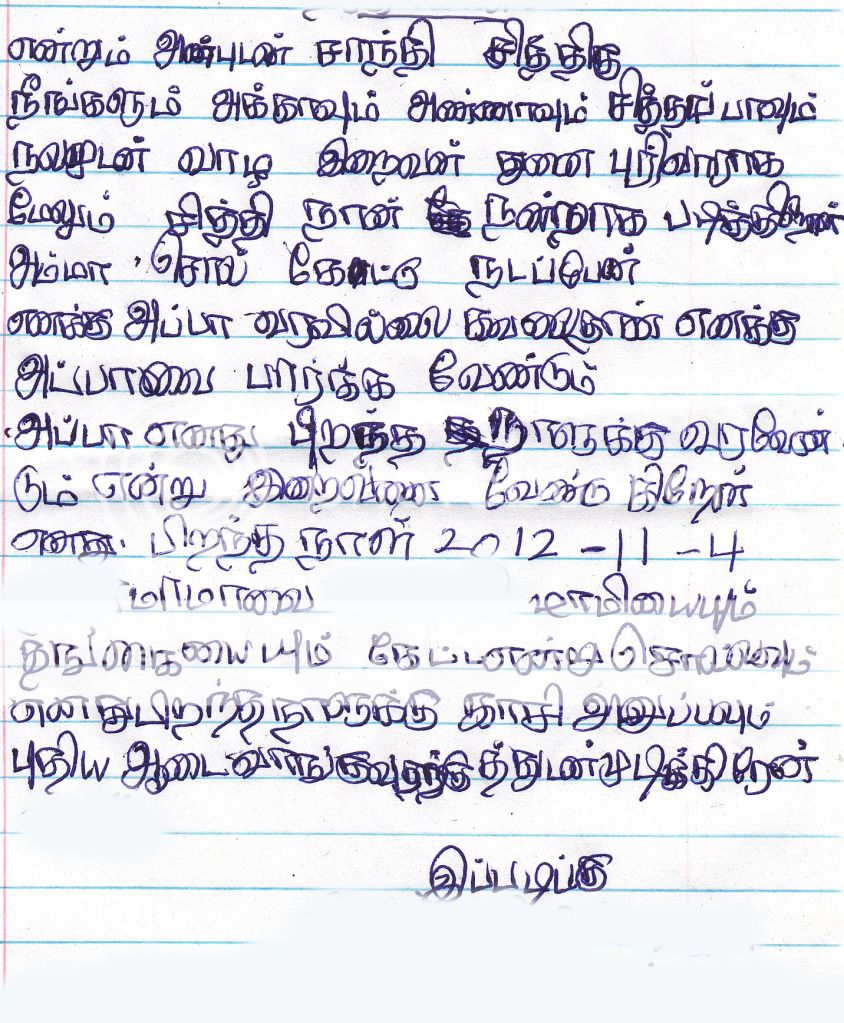 என்றும் அன்புடன் சாந்தி சித்திகு
நீங்களும் அக்காவும் அண்ணாவும் சித்தப்பாவும்
நலமுடன் வாழ இறைவன் துனை புரிவாராக
மேலும் சித்தி நான் நன்றாக படித்கிறேன்
அம்மா சொல் கேட்டு நடப்பேன்
எனக்கு அப்பா வரவில்லை கவலைதான் எனக்கு
அப்பாவை பார்க்க வேண்டும்
அப்பா எனது பிறந்த நாளுக்கு வரவேண்
டும் என்று இறைவனை வேண்டு கிறேன்
எனது பிறந்த நாள் 2012 -11 -4
மாமாவை மாமியையும்
தங்கையையும் கேட்டஎன்று சொல்லவும்
எனதுபிறந்தநாளுக்கு காசி அனுப்பவும்
புதிய ஆடை முடிக்கிறேன்
இப்படிக்கு